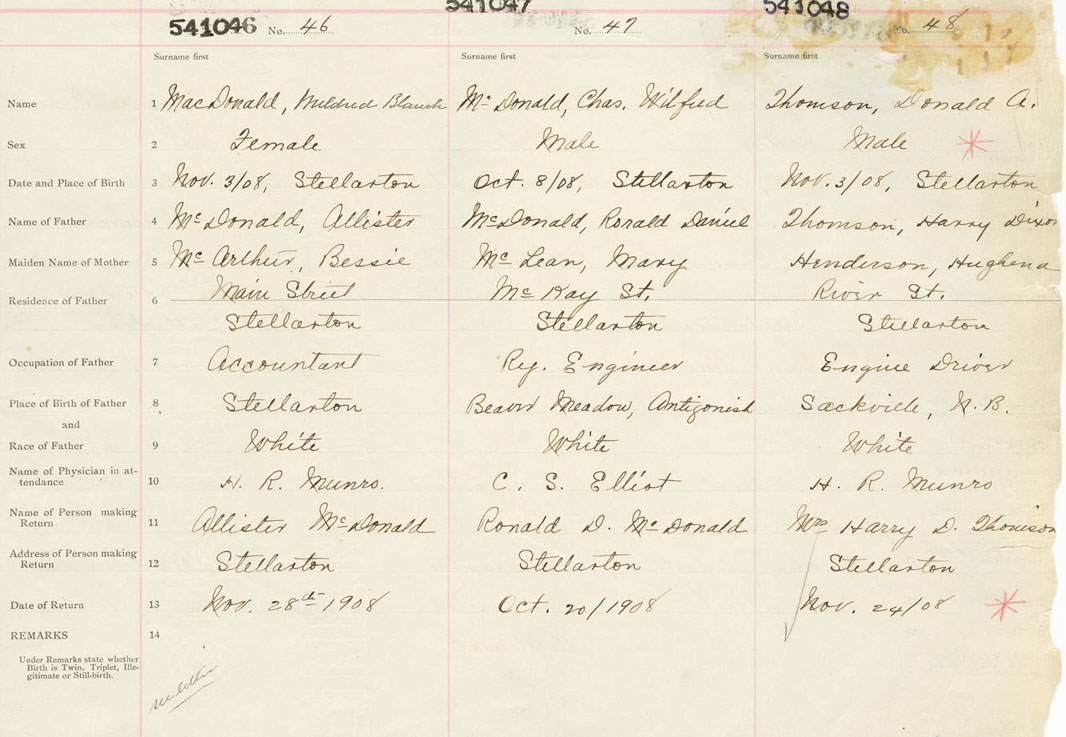 541046 No. 46 541047 No. 47 541048 No. 48
Surname first Surname first Surname first
Name 1 MacDonald, Mildred Blanch Mc Donald, Chas. Wilfred Thomson, Donald A.
Sex 2 Female Male Male
Date and Place of Birth 3 Nov. 3/08, Stellarton Oct. 8/08, Stellarton Nov. 3/08, Stellarton
Name of Father 4 McDonald, Allister McDonald, Ronald Daniel Thomson, Harry Dixon
Maiden Name of Mother 5 Mc Arthur, Bessie Mc Lean, Mary Henderson, Hughena
Residence of Father 6 Main Street Mc Kay St. River St.
Stellarton Stellarton Stellarton
Occupation of Father 7 Accountant Engineer Engine Driver
Place of Birth of Father 8 Stellarton Beaver Meadow, Antigonish Sackville, N. B.
and
Race of Father 9 White White White
Name of Physician in at-
tendance 10 H. R. Munro. C. S. Elliot H. R. Munro
Name of Person making
Return 11 Allister McDonald Ronald D. McDonald Mrs Harry D. Thomson
Address of Person making
Return 12 Stellarton Stellarton Stellarton
Date of Return 13 Nov. 28th 1908 Oct. 20/1908 Nov. 24/08
REMARKS 14
Under Remarks state whether
Birth is Twin, Triplet, Ille-
gitimate or Still-birth.